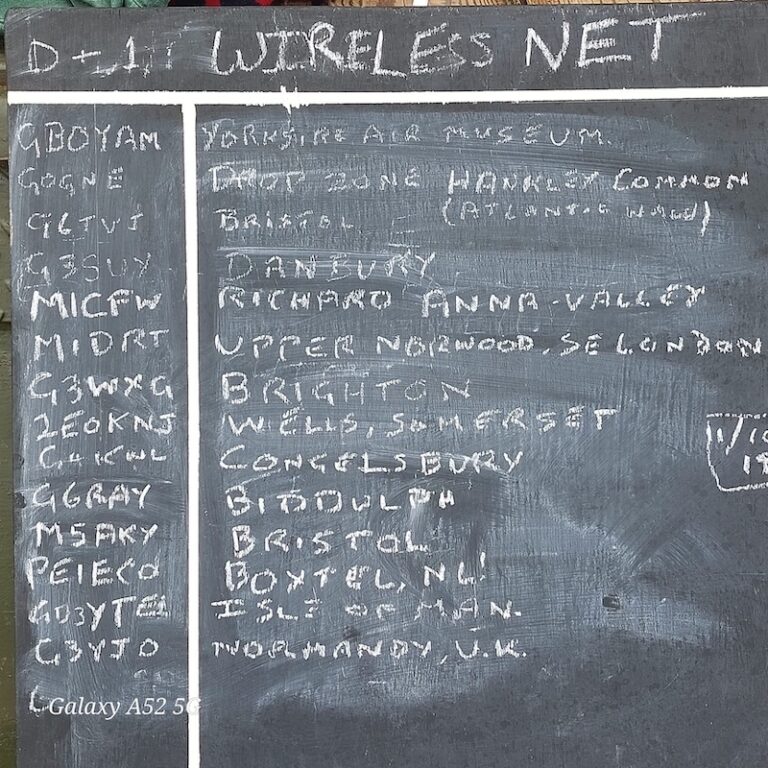 D+1 WIRELESS NET
GB0YAM YORKSIRE AIR MUSEUM.
G0GNE DROP ZONE HANKLEY COMMON
(ATLANTIC WALL)
G6TVJ BRISTOL
G3SUY DANBURY
M1CFW RICHARD ANNA-VALLEY
M1DRT UPPER NORWOOD, SE LONDON
G3WXG BRIGHTON
2E0KNJ WELLS, SOMERSET
CONGELSBURY
G6RAY BIDDULPH
M5AKY BRISTOL
PE1ECO BOXTEL, NL!
ISLE OF MAN.
G3YJO NORMANDY, U.K.
11/10
Galaxy A52 5G